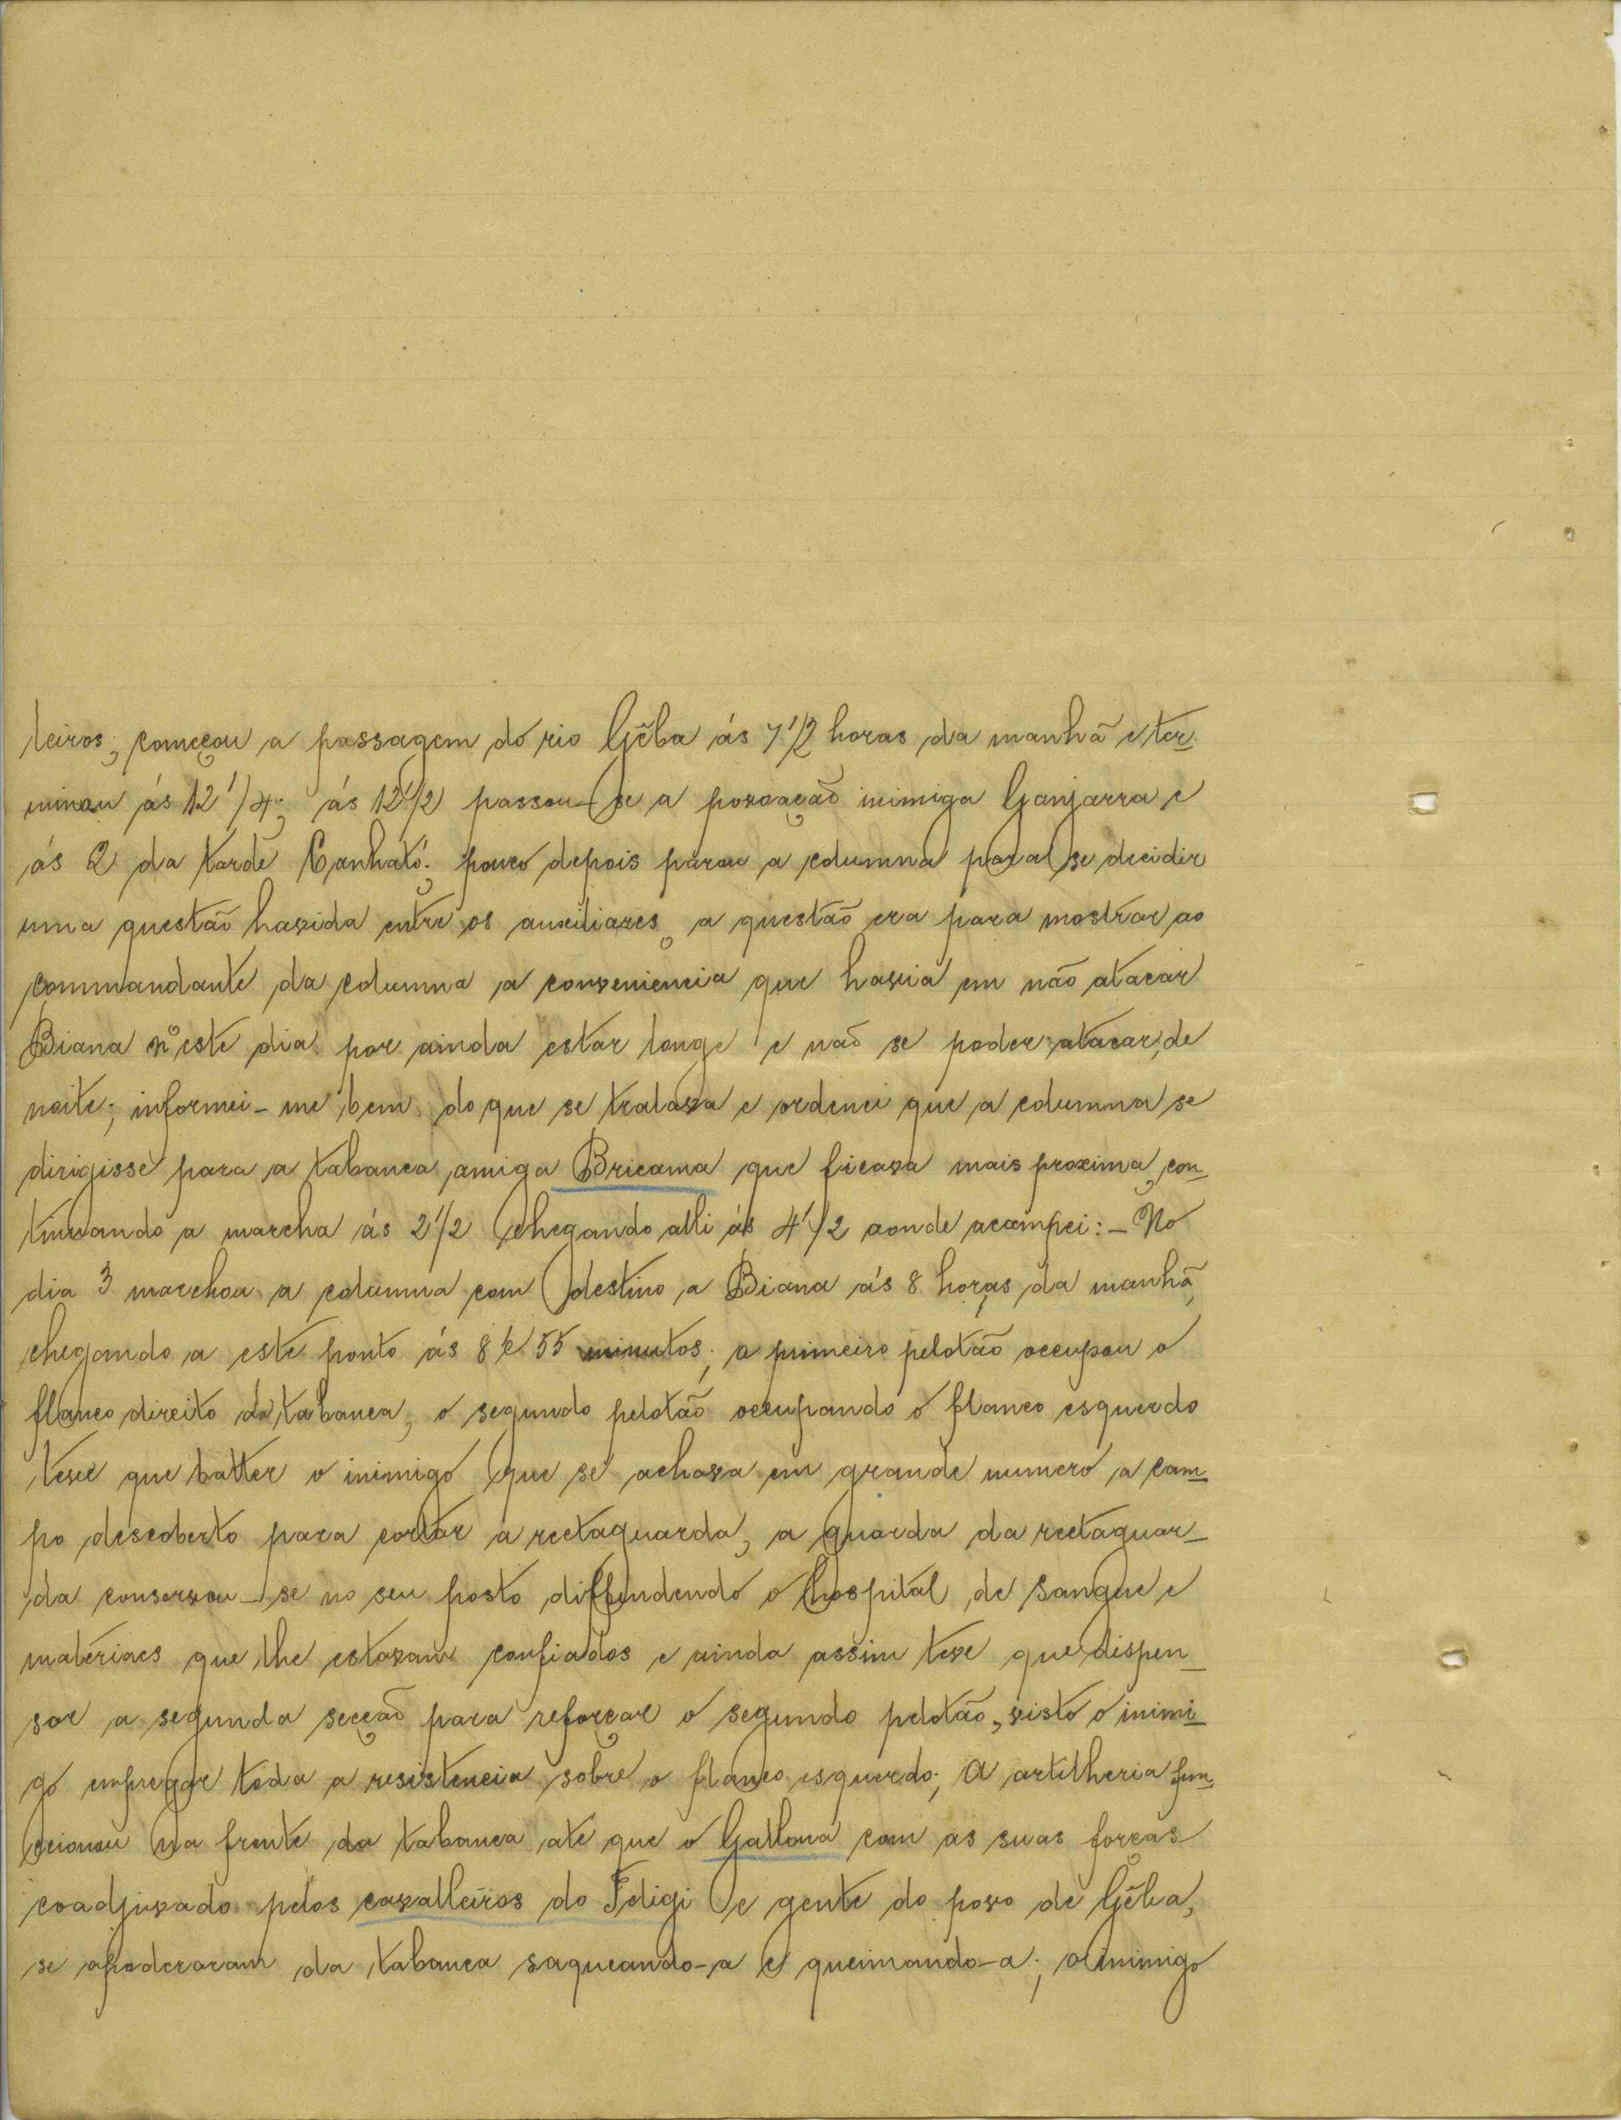 leiros; começou a passagem do rio Gêba ás 7 1/2 horas da manhã e ter-
minou ás 12 1/4; ás 12 1/2 passou-se a povoação inimiga Ganjarra e
ás 2 da tarde Canható; pouco depois parou a columna para se decidir
uma questão havida entre os auxiliares, a questão era para mostrar ao
commandante da columna a conveniencia que havia em não atacar
Biana n'este dia por ainda estar longe e não se poder atacar de
noite; informei-me bem do que se tratava e ordenei que a columna se
dirigisse para a tabanca amiga Bricama que ficava mais proxima, con-
tinuando a marcha ás 2 1/2 chegando alli ás 4 1/2 aonde acampei:- No
dia 3 marchou a columna com destino a Biana ás 8 horas da manhã,
chegando a este ponto ás 8 e 55 minutos; o primeiro pelotão occupou o
flanco direito da tabanca, o segundo pelotão occupando o flanco esquerdo
teve que batter o inimigo que se achava em grande numero a cam-
po descoberto para cortar a rectaguarda, a guarda da rectaguar-
da conservou-se no seu posto diffendendo o hospital de sangue e
materiaes que lhe estavam confiados e ainda assim teve que dispen-
sar a segunda secção para reforçar o segundo pelotão, visto o inimi-
go empregar toda a resistencia sobre o flanco esquerdo; A artilheria fun-
ccionou na frente da tabanca até que o Gallona com as suas forças
coadjuvado pelos cavalleiros do Fdigi e gente do povo de Gêba,
se apoderaram da tabanca saqueando-a e queimando-a; o inimigo